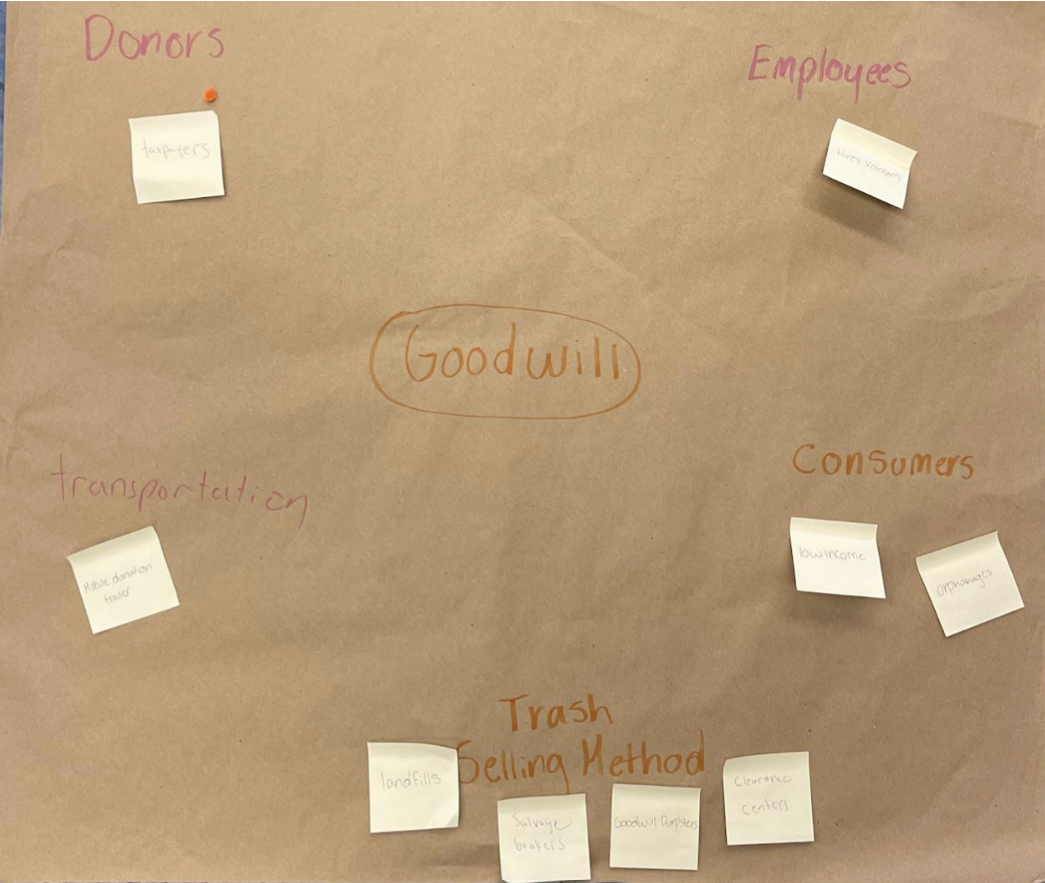 Donors
Employees
taxpayers
Hires Veterans
Goodwill
transportation
Consumers
Mobile donation
trailer
low income
orphanages
Trash
Selling Method
landfills
Salvage
brokers
Goodwill Dumpsters
Clearance
centers